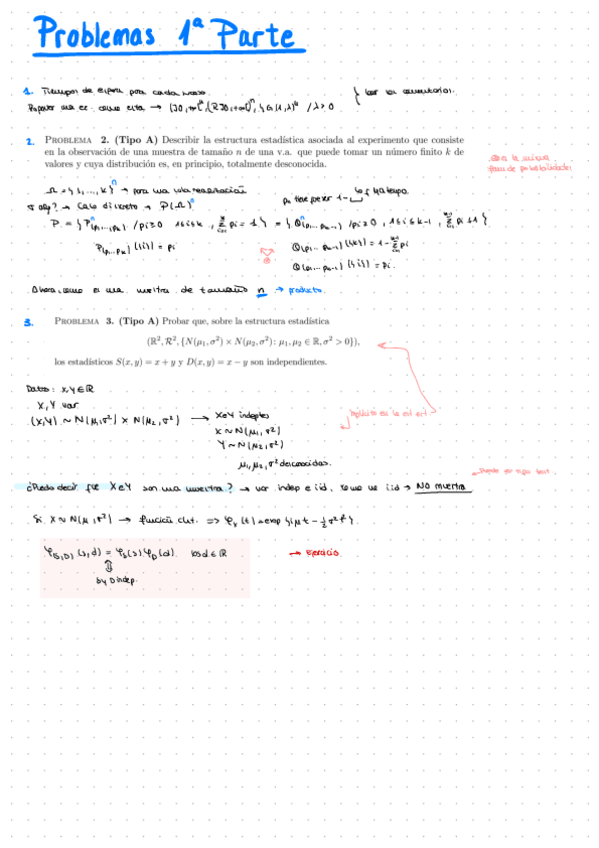 Problemas 1ª Parte
1. Tiempos de espera para cada
Proponer una ee. como esta → (]0,+∞[ⁿ, (R]0,+∞[)ⁿ, {G(1,λ)ⁿ / λ>0
2. PROBLEMA 2. (Tipo A) Describir la estructura estadística asociada al experimento que consiste
en la observación de una muestra de tamaño n de una v.a. que puede tomar un número finito k de
valores y cuya distribución es, en principio, totalmente desconocida.
Ω = {1,...,k}ⁿ → para una sola realización
σ alg? → Caso discreto → P(Ω)ⁿ
P = {Pⁿ(p₁...pₖ) / pi≥0 1≤i≤k, Σ pi = 1} = {Qⁿ(p₁...pₖ₋₁) / pi≥0, 1≤i≤k-1, Σ pi ≤1}
P(p₁...pₖ) ({i}) = pi
Q(p₁...pₖ₋₁) ({k}) = 1-Σpi
Q(p₁...pₖ₋₁) ({i}) = pi.
Ahora, como es una muestra de tamaño n → producto.
3. PROBLEMA 3. (Tipo A) Probar que, sobre la estructura estadística
(ℝ², R², {N(μ₁, σ²) × N(μ₂, σ²): μ₁, μ₂ ∈ ℝ, σ² > 0}),
los estadísticos S(x, y) = x + y y D(x, y) = x − y son independientes.
Datos: x,y∈ℝ
X, Y var.
(X,Y) ~ N(μ₁,σ²) × N(μ₂,σ²) → X e Y indeptes
X ~ N(μ₁, σ²)
Y ~ N(μ₂, σ²)
μ₁, μ₂, σ² desconocidas.
¿Puedo decir que X e Y son una muestra? → var indep e iid, como no iid → NO muestra
Si X ~ N(μ, σ²) → función cht. => φₓ(t) = exp{iμt - ½σ²t²}.
φ(S,D)(s,d) = φS(s) φD(d). s,d ∈ ℝ → Ejercicio
⇕
S y D indep.